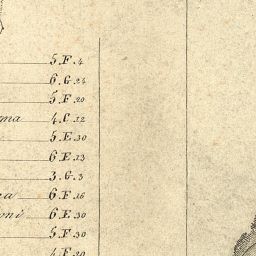 5.F.4
6.G.24
5.F.20
ma 4.C.12
5.E.30
6.E.13
3.G.3
a 6.F.16
oni 6.E.30
5.F.30
4.F.20